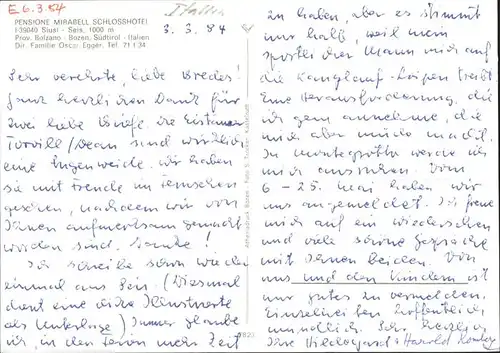 E 6.3.84
Italien
PENSIONE MIRABELL SCHLOSSHOTEL
I-39040 Siusi - Seis, 1000 m
Prov. Bolzano - Bozen, Südtirol - Italien
Dir. Familie Oscar Egger, Tel. 71 1 34
3. 3. 84
Sehr verehrte, liebe Bredes!
Ganz herzlichen Dank für
zwei liebe Briefe. Die Eistänzer
Torvill/Dean sind wirklich
eine Augenweide. Wir haben
sie mit Freude im Fernsehen
gesehen, nachdem wir von
Ihnen aufmerksam gemacht
worden sind. Danke!
Ich schreibe schon wieder
einmal aus Seis. (Diesmal
dient eine dicke Illustrierte
als Unterlage) Immer glaube
ich, in den Ferien mehr Zeit
zu haben, aber es stimmt
nur halb, weil mein
sportlicher Mann mich auf
die Langlauf-Loipen treibt
Eine Herausforderung, die
ich gern annehme, die
mich aber müde macht.
In Montegrotto werde ich
mich ausruhen. Vom
6 - 25. Mai haben wir
uns angemeldet. Ich freue
mich auf ein Wiedersehen
und viele schöne Gespräche
mit Ihnen beiden. Von
uns und den Kindern ist
nur gutes zu vermelden.
Einzelheiten hoffentlich
mündlich. Sehr herzlich
Ihre Hildegard + Harold